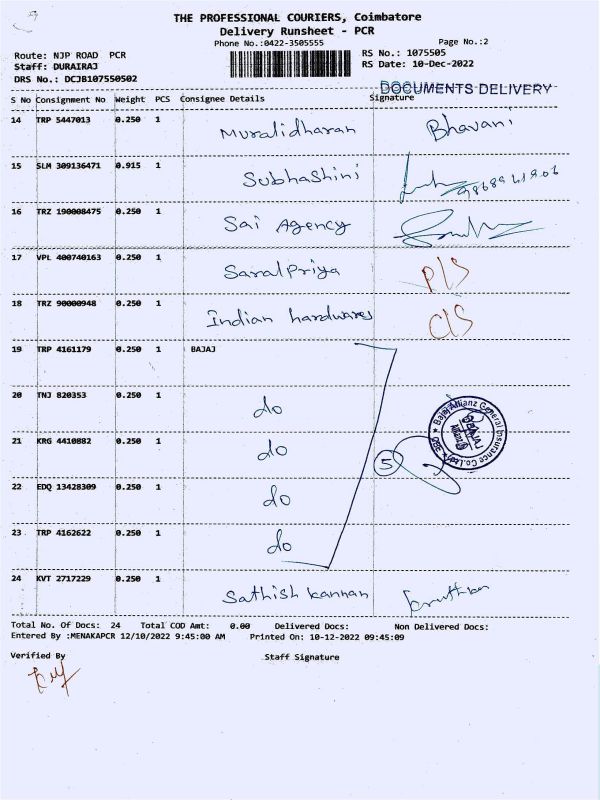 THE PROFESSIONAL COURIERS, Coimbatore
Delivery Runsheet - PCR
Phone No.:0422-3505555
Page No.:2
Route: NJP ROAD PCR
RS No.: 1075505
Staff: DURAIRAJ
RS Date: 10-Dec-2022
DRS No.: DCJB107550502
DOCUMENTS DELIVERY
S No Consignment No Weight PCS Consignee Details Signature
14 TRP 5447013 0.250 1 Muralidharan Bhavani
15 SLM 309136471 0.915 1 Subhashini
16 TRZ 190008475 0.250 1 Sai Agency
17 VPL 400740163 0.250 1 SaralPriya P/S
18 TRZ 90000948 0.250 1 Indian hardwares C/S
19 TRP 4161179 0.250 1 BAJAJ
20 TNJ 820353 0.250 1 do
21 KRG 4410882 0.250 1 do
5
Bajaj Allianz General Insurance Co.Ltd.
22 EDQ 13428309 0.250 1 do
23 TRP 4162622 0.250 1 do
24 KVT 2717229 0.250 1 Sathish kannan
Total No. Of Docs: 24 Total COD Amt: 0.00 Delivered Docs: Non Delivered Docs:
Entered By :MENAKAPCR 12/10/2022 9:45:00 AM Printed On: 10-12-2022 09:45:09
Verified By
Staff Signature